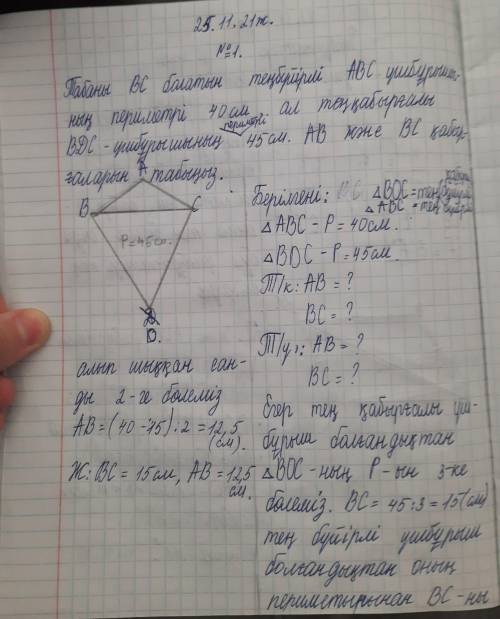 25.11.21ж.
№1.
Табаны BC болатын теңбүйірлі ABC үшбұрышы-
ның периметрі 40 см, ал теңқабырғалы
BDC-үшбұрышының периметрі 45см. AB және BC қабыр-
ғаларын табыңыз.
A
B
C
P=45см.
D.
Берілгені: △BDC=тең қабырғалы
△ABC =тең бүйірлі
△ABC-P=40см.
△BDC-P=45см.
Т/к: AB=?
BC=?
Т/у: AB=?
BC=?
Егер тең қабырғалы үш-
бұрыш болғандықтан
△BDC-ның P-ын 3-ке
бөлеміз. BC=45:3=15(см)
тең бүйірлі үшбұрыш
болғандықтан оның
периметрынан BC-ны
алып шыққан сан-
ды 2-ге бөлеміз
AB=(40-15):2=12,5
(см).
Ж: BC=15см, AB=12,5
см.